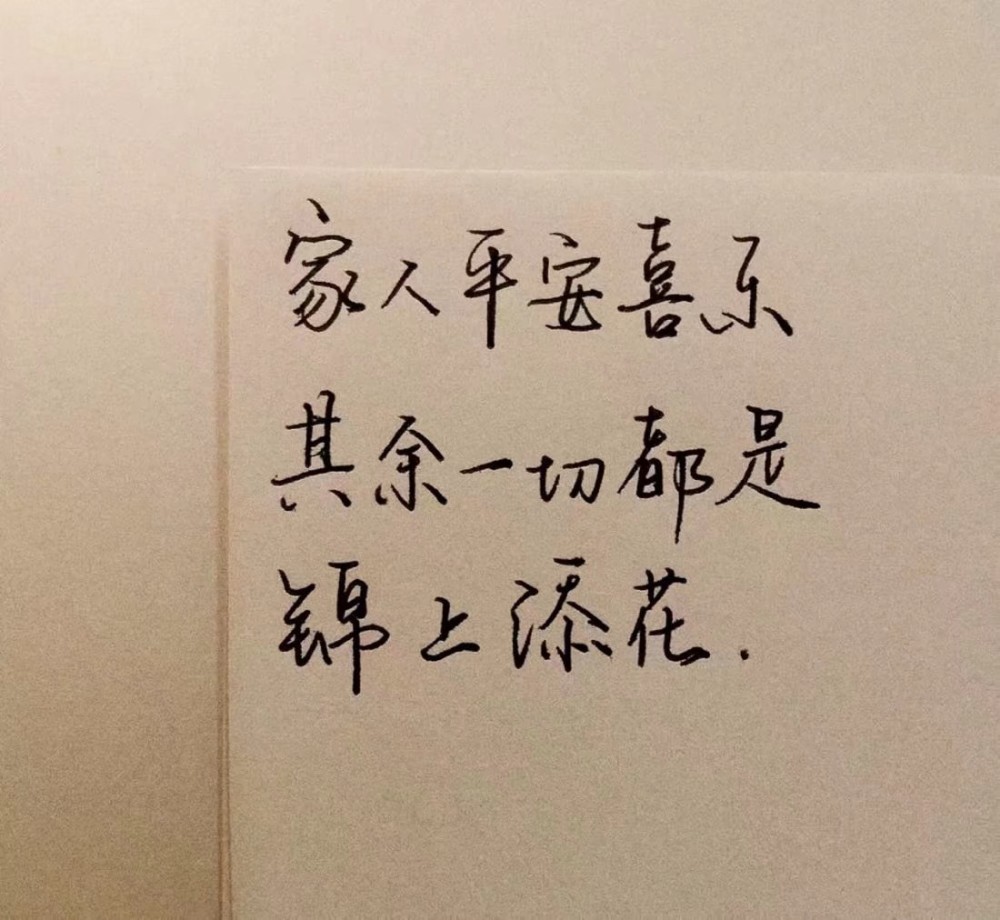 家人平安喜乐
其余一切都是
锦上添花.